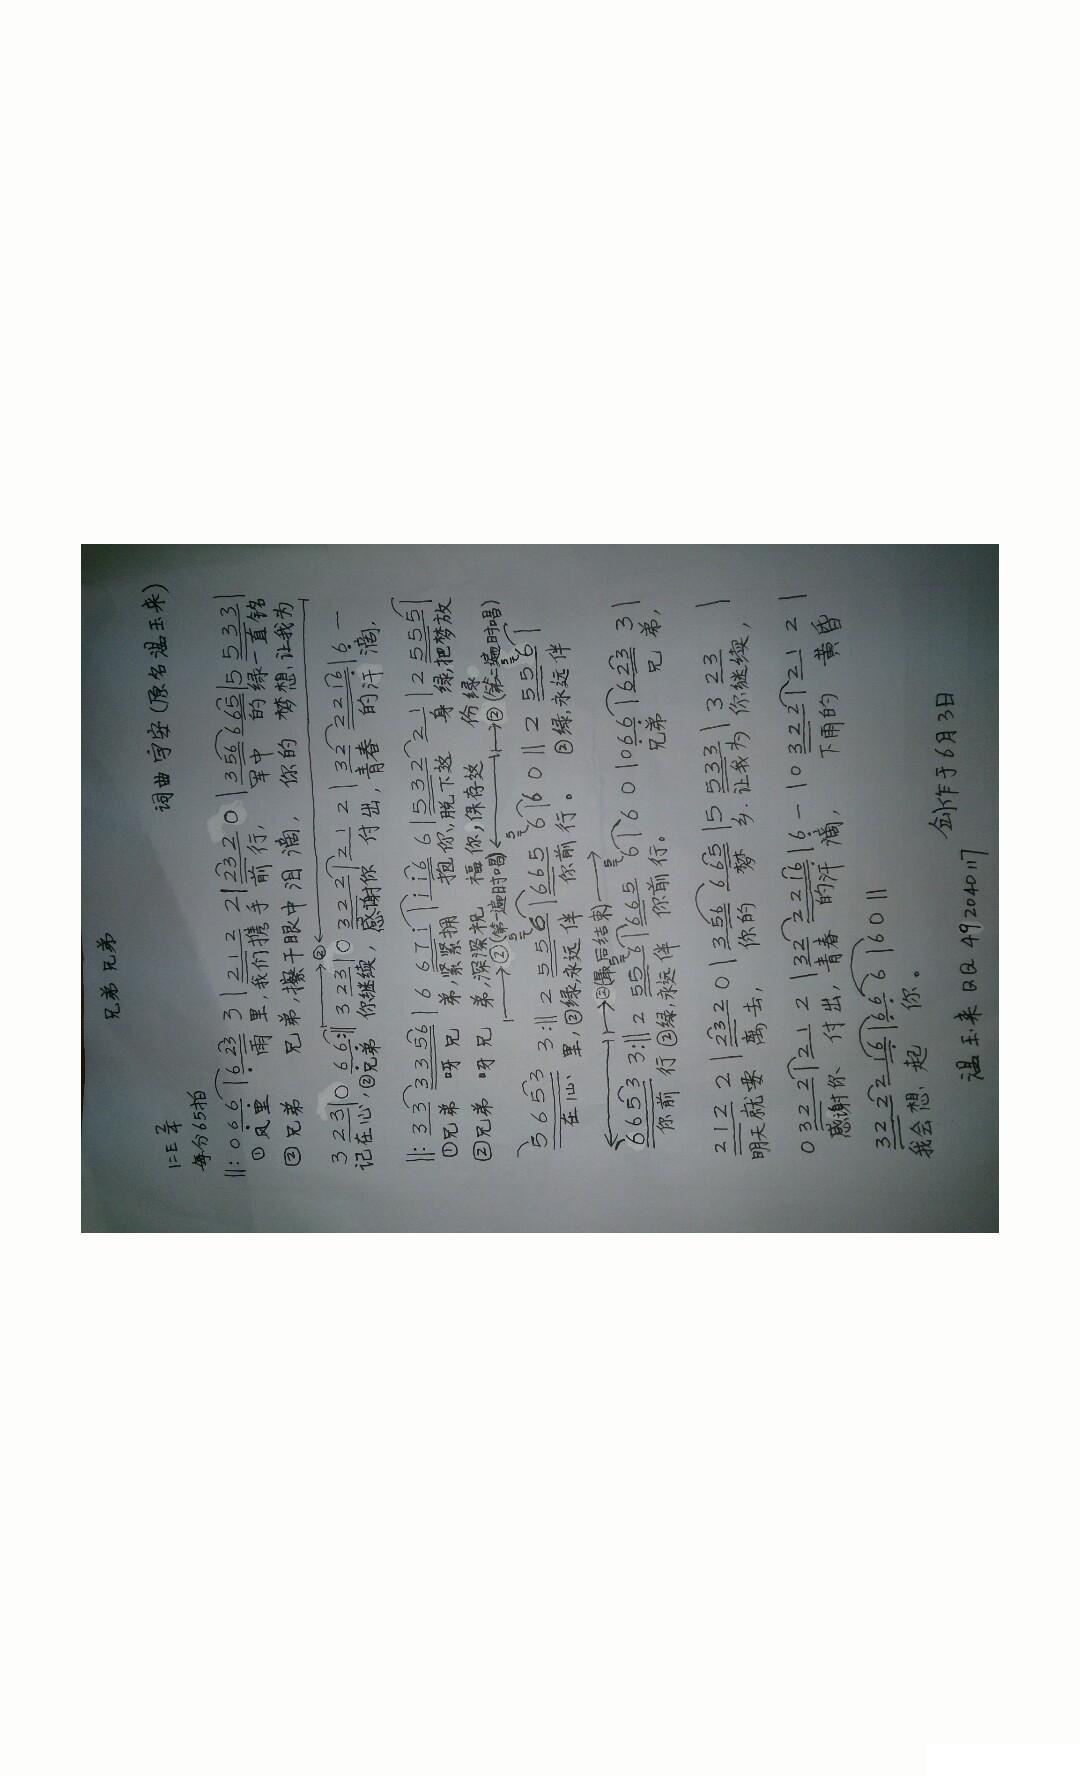 兄弟兄弟
词曲 宇安 (原名温玉来)
1=E 2/4
每分65拍
||: 0 6 6 | 6 2 3 3 | 2 1 2 2 | 2 3 2 0 | 3 5 6 6 6 5 | 5 5 3 3 |
① 风里 雨里,我们携手 前行, 军中 的绿一直铭
② 兄弟 兄弟,擦干眼中泪滴, 你的 梦想,让我为
3 2 3 | 0 6 6 :|| 3 2 3 | 0 3 2 2 | 2 1 2 | 3 2 2 2 1 6 | 6 —
记在心,②兄弟 你继续,感谢你 付出,青春 的汗 滴,
||: 3 3 3 3 5 6 | 6 6 7 i | i i 6 6 | 5 3 2 2 1 | 2 5 5 5 |
①兄弟 呀兄 弟,紧紧拥 抱你,脱下这 身绿,把梦放
②兄弟 呀兄 弟,深深祝 福你,保存这 份绿
① (第一遍时唱) ② (第二遍时唱)
5 6 5 3 3 :|| 2 5 5 6 | 6 6 5 6 | 6 0 || 2 5 5 6 |
在心里,②绿,永远伴 你前行。 ②绿,永远伴
② (最后结束)
6 6 5 3 3 :|| 2 5 5 6 | 6 6 5 6 | 6 0 | 0 6 6 | 6 2 3 3 |
你前 行 ②绿,永远伴 你前行。 兄弟 兄弟,
2 1 2 2 | 2 3 2 0 | 3 5 6 6 6 5 | 5 5 3 3 | 3 2 3 |
明天就要 离去, 你的 梦 乡.让我为 你继续,
0 3 2 2 | 2 1 2 | 3 2 2 2 1 6 | 6 — | 0 3 2 2 | 2 1 2 |
感谢你 付出,青春 的汗 滴, 下雨的 黄昏
3 2 2 2 1 6 | 6 6 6 | 6 0 ||
我会想起 你。
创作于6月3日
温玉来 QQ 492040117